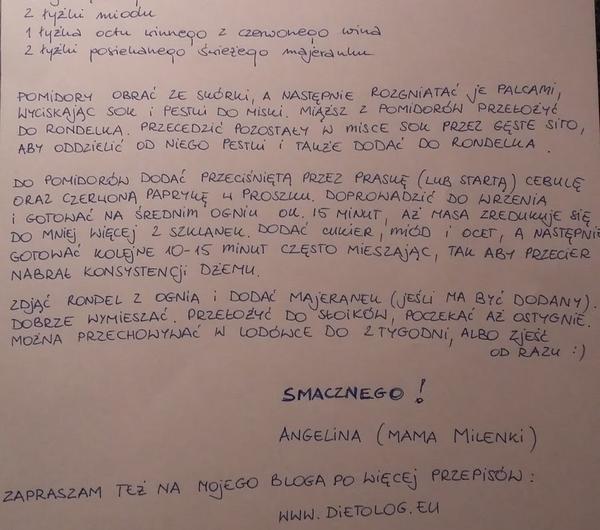 2 łyżki miodu
1 łyżka octu winnego z czerwonego wina
2 łyżki posiekanego świeżego majeranku
POMIDORY OBRAĆ ZE SKÓRKI, A NASTĘPNIE ROZGNIATAĆ JE PALCAMI,
WYCISKAJĄC SOK I PESTKI DO MISKI. MIĄŻSZ Z POMIDORÓW PRZEŁOŻYĆ
DO RONDELKA. PRZECEDZIĆ POZOSTAŁY W MISCE SOK PRZEZ GĘSTE SITO,
ABY ODDZIELIĆ OD NIEGO PESTKI I TAKŻE DODAĆ DO RONDELKA.
DO POMIDORÓW DODAĆ PRZECIŚNIĘTĄ PRZEZ PRASKĘ (LUB STARTĄ) CEBULĘ
ORAZ CZERWONĄ PAPRYKĘ W PROSZKU. DOPROWADZIĆ DO WRZENIA
I GOTOWAĆ NA ŚREDNIM OGNIU OK. 15 MINUT, AŻ MASA ZREDUKUJE SIĘ
DO MNIEJ WIĘCEJ 2 SZKLANEK. DODAĆ CUKIER, MIÓD I OCET, A NASTĘPNIE
GOTOWAĆ KOLEJNE 10-15 MINUT CZĘSTO MIESZAJĄC, TAK ABY PRZECIER
NABRAŁ KONSYSTENCJI DŻEMU.
ZDJĄĆ RONDEL Z OGNIA I DODAĆ MAJERANEK (JEŚLI MA BYĆ DODANY).
DOBRZE WYMIESZAĆ. PRZEŁOŻYĆ DO SŁOIKÓW, POCZEKAĆ AŻ OSTYGNIE.
MOŻNA PRZECHOWYWAĆ W LODÓWCE DO 2 TYGODNI, ALBO ZJEŚĆ
OD RAZU :)
SMACZNEGO!
ANGELINA (MAMA MILENKI)
ZAPRASZAM TEŻ NA MOJEGO BLOGA PO WIĘCEJ PRZEPISÓW:
WWW.DIETOLOG.EU